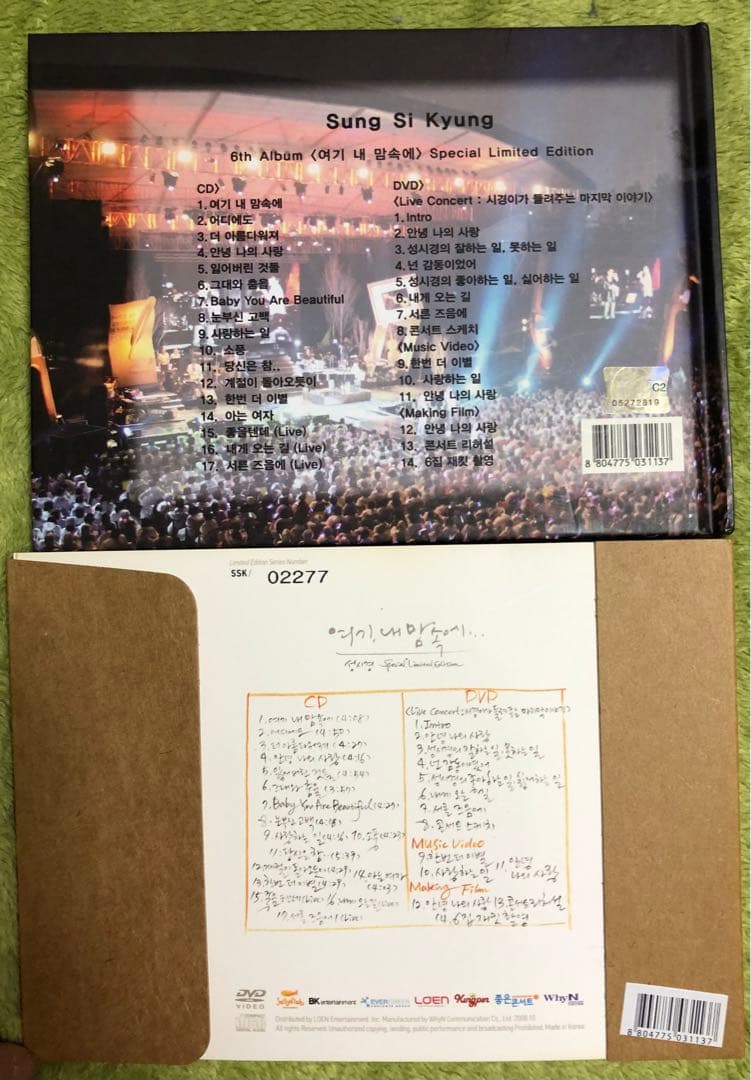 Sung Si Kyung
6th Album 〈여기 내 맘속에〉 Special Limited Edition
CD〉
1.여기 내 맘속에
2.어디에도
3.더 아름다워져
4.안녕 나의 사랑
5.잃어버린 것들
6.그대와 춤을
7.Baby You Are Beautiful
8.눈부신 고백
9.사랑하는 일
10. 소풍
11. 당신은 참..
12. 계절이 돌아오듯이
13. 한번 더 이별
14. 아는 여자
15. 좋을텐데 (Live)
16. 내게 오는 길 (Live)
17. 서른 즈음에 (Live)
DVD〉
〈Live Concert : 시경이가 들려주는 마지막 이야기〉
1.Intro
2.안녕 나의 사랑
3.성시경의 잘하는 일, 못하는 일
4.넌 감동이었어
5.성시경의 좋아하는 일, 싫어하는 일
6.내게 오는 길
7.서른 즈음에
8.콘서트 스케치
〈Music Video〉
9.한번 더 이별
10. 사랑하는 일
11. 안녕 나의 사랑
〈Making Film〉
12. 안녕 나의 사랑
13. 콘서트 리허설
14. 6집 재킷 촬영
C2
05272819
8 804775 031137
Limited Edition Series Number
SSK/ 02277
여기, 내 맘속에...
성시경 Special Limited Edition
CD
1.여기 내 맘속에(4:08)
2.어디에도
3.더 아름다워져(4:27)
4.안녕 나의 사랑(4:16)
5.잃어버린 것들
6.그대와 춤을(3:57)
7.Baby You Are Beautiful(4:29)
8.눈부신 고백
9.사랑하는 일(4:16) 10.소풍(4:23)
11.당신은 참..
12.계절이 돌아오듯이(4:29)
13.한번 더 이별(4:29) 14.아는 여자
15.좋을텐데(Live) 16.내게 오는 길(Live)
17.서른 즈음에(Live)
DVD
〈Live Concert:시경이가 들려주는 마지막 이야기〉
1.Intro
2.안녕 나의 사랑
3.성시경의 잘하는 일, 못하는 일
4.넌 감동이었어
5.성시경의 좋아하는 일, 싫어하는 일
6.내게 오는 길
7.서른 즈음에
8.콘서트 스케치
Music Video
9.한번 더 이별
10.사랑하는 일 11.안녕 나의 사랑
Making Film
12.안녕 나의 사랑 13.콘서트 리허설
14.6집 재킷 촬영
DVD VIDEO
Jellyfish BK entertainment EVERGREEN LOEN Kingpin 좋은콘서트 WhyN
Distributed by LOEN Entertainment, Inc. Manufactured by WhyN Communication Co., Ltd. 2008.10
All rights Reserved. Unauthorized copying, lending, public performance and broadcasting Prohibited. Made in Korea
8 804775 031137